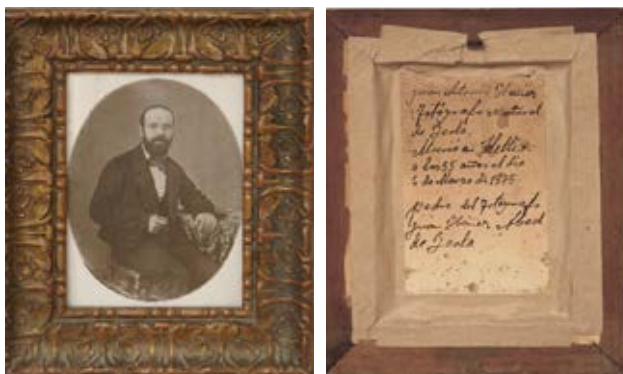 Juan Antonio Ibañez
Fotógrafo natural
de Yecla
Murió en Hellin
a los 55 años el dia
de Marzo de
padre del Fotógrafo
Juan Ibañez Abad
de Yecla